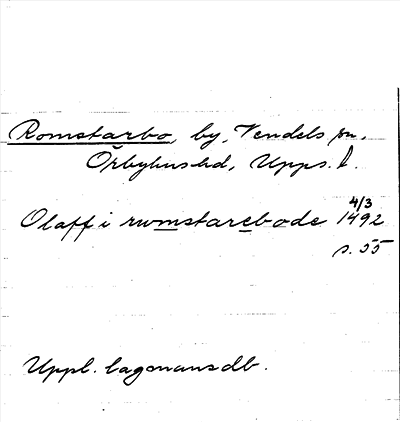 Romstarbo, by, Vendels sn,
Örbyhus hd, Upps. l.
Olaff i rumstarebode 4/3 1492
s. 55
Uppl. lagmansdb.